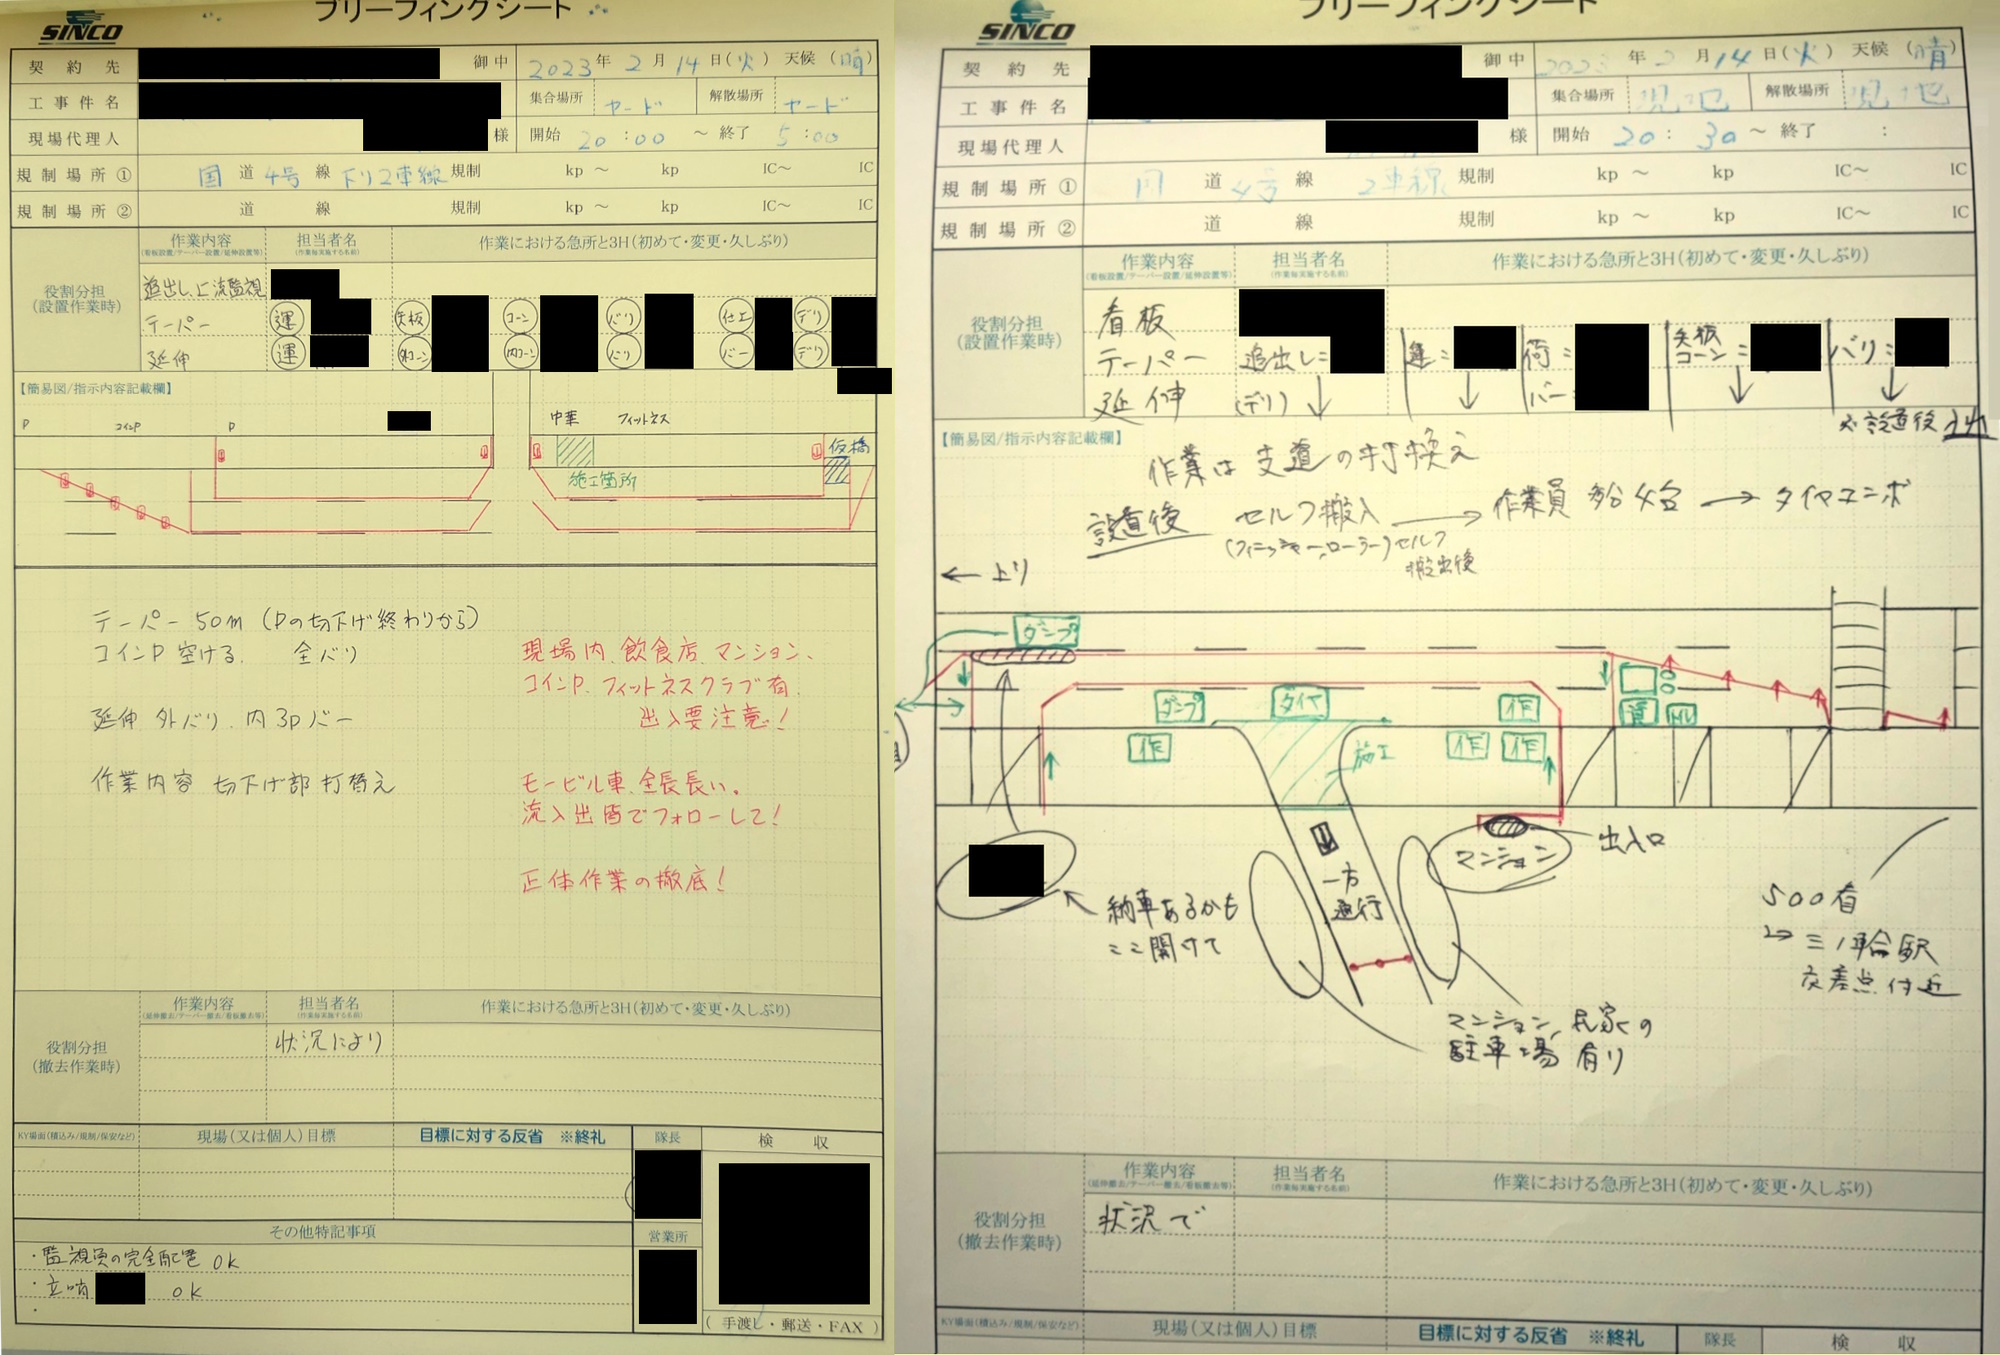 ブリーフィングシート
SINCO
契約先 御中 2023年2月14日(火) 天候(晴)
工事件名 集合場所 ヤード 解散場所 ヤード
現場代理人 様 開始 20:00 ～ 終了 5:00
規制場所① 国道 4号線 下り2車線 規制 kp ～ kp IC～ IC
規制場所② 道 線 規制 kp ～ kp IC～ IC
役割分担
(設置作業時)
作業内容 担当者名 作業における急所と3H(初めて・変更・久しぶり)
(看板設置/テーパー設置/延伸設置等) (作業毎実施する名前)
追出し、上流監視
テーパー 運 矢板 コーン バリ 仕エ デリ
延伸 運 外コーン 内コーン バリ バー デリ
【簡易図/指示内容記載欄】
P コインP P 中華 フィットネス
仮橋
施工箇所
テーパー 50m (Pの切下げ終わりから)
コインP 空ける、 全バリ
延伸 外バリ、内 3Pバー
作業内容 切下げ部 打替え
現場内、飲食店、マンション、
コインP、フィットネスクラブ有、
出入要注意!
モービル車、全長長い。
流入出皆でフォローして!
正体作業の撤底!
役割分担
(撤去作業時)
作業内容 担当者名 作業における急所と3H(初めて・変更・久しぶり)
(延伸撤去/テーパー撤去/看板撤去等) (作業毎実施する名前)
状況により
KY場面(積込み/規制/保安など) 現場(又は個人)目標 目標に対する反省 ※終礼 隊長 検収
その他特記事項 営業所
・監視員の完全配置 OK
・立哨 OK
・
(手渡し・郵送・FAX)
ブリーフィングシート
SINCO
契約先 御中 2023年2月14日(火) 天候(晴)
工事件名 集合場所 現地 解散場所 現地
現場代理人 様 開始 20:30 ～ 終了 :
規制場所① 道 4号線 2車線 規制 kp ～ kp IC～ IC
規制場所② 道 線 規制 kp ～ kp IC～ IC
役割分担
(設置作業時)
作業内容 担当者名 作業における急所と3H(初めて・変更・久しぶり)
(看板設置/テーパー設置/延伸設置等) (作業毎実施する名前)
看板
テーパー 追出し= 運= 荷= 矢板 コーン= バリ=
延伸 (デリ) バー=
※設置後
【簡易図/指示内容記載欄】
作業は支道の打換え
設置後 セルフ搬入 → 作業員 → タイヤユンボ
(フィニッシャー、ローラー) セルフ
搬出後
← 上り
ダンプ
ダンプ タイヤ 作
作 作 作
資 HV
施工
出入口
マンション
納車あるかも
ここ開けて
一方
通行
500有
三ノ輪駅
交差点付近
マンション、民家の
駐車場有り
役割分担
(撤去作業時)
作業内容 担当者名 作業における急所と3H(初めて・変更・久しぶり)
(延伸撤去/テーパー撤去/看板撤去等) (作業毎実施する名前)
状況で
KY場面(積込み/規制/保安など) 現場(又は個人)目標 目標に対する反省 ※終礼 隊長 検収